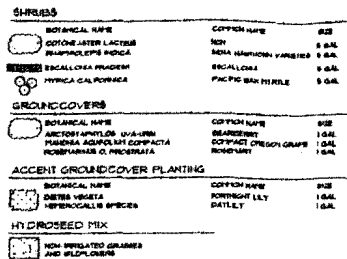 SHRUBS
BOTANICAL NAME COMMON NAME SIZE
COTONEASTER LACTEUS 5 GAL
RHAPHIOLEPIS INDICA INDIA HAWTHORN VARIETIES 5 GAL
ESCALLONIA FRADESII ESCALLONIA 5 GAL
MYRICA CALIFORNICA PACIFIC WAX MYRTLE 5 GAL
GROUNDCOVERS
BOTANICAL NAME COMMON NAME SIZE
ARCTOSTAPHYLOS UVA-URSI BEARBERRY 1 GAL
MAHONIA AQUIFOLIUM COMPACTA COMPACT OREGON GRAPE 1 GAL
ROSMARINUS O. PROSTRATA ROSEMARY 1 GAL
ACCENT GROUNDCOVER PLANTING
BOTANICAL NAME COMMON NAME SIZE
DIETES VEGETA FORTNIGHT LILY 1 GAL
HEMEROCALLIS SPECIES DAYLILY 1 GAL
HYDROSEED MIX
NON-IRRIGATED GRASSES
AND WILDFLOWERS